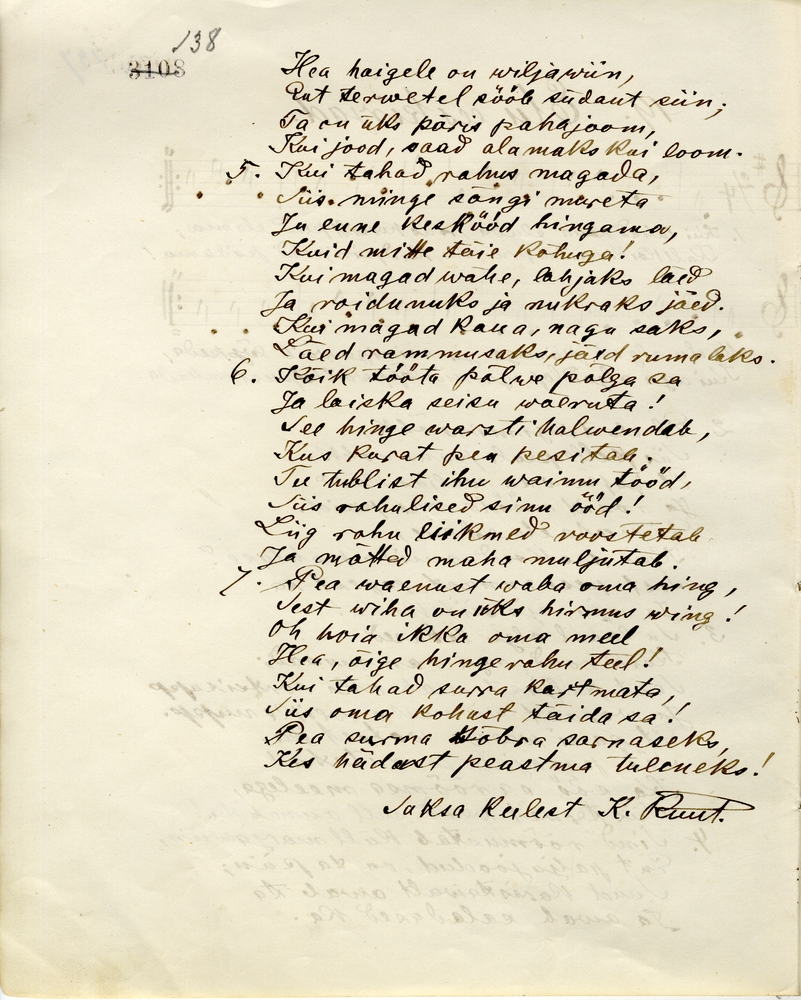 138
3108
Hea haigele on wiljawiin,
Ent terwetel sööb südant siin;
Ta on üks päris pahajoom,
Kui jood, saad alamaks kui loom.
5. Kui tahad rahus magada,
Siis minge sängi mureta
Ja enne keskööd hingama,
Kuid mitte täie kõhuga!
Kui magad wähe, lahjaks läed
Ja roidunuks ja nukraks jäed.
Kui magad kaua, nagu saks,
Läed rammusaks, jäed rumalaks.
6. Kõik tööta põlwe põlga sa
Ja laiska seisu waeruta!
See hinge warsti halwendab,
Kus kurat pea pesitab.
Tee tublist ihu waimu tööd,
Siis rahulised sinu ööd!
Liig rahu liikmed roostetab
Ja mõtted maha muljutab.
7. Pea waenust waba oma hing,
Sest wiha on üks hirmus wing!
Oh hoia ikka oma meel
Hea, õige hingerahu teel!
Kui tahad surra kartmata,
Siis oma kohust täida sa!
Pea surma sõbra sarnaseks,
Kes hädast peastma tuleneks!
Saksa keelest K. Ruut.